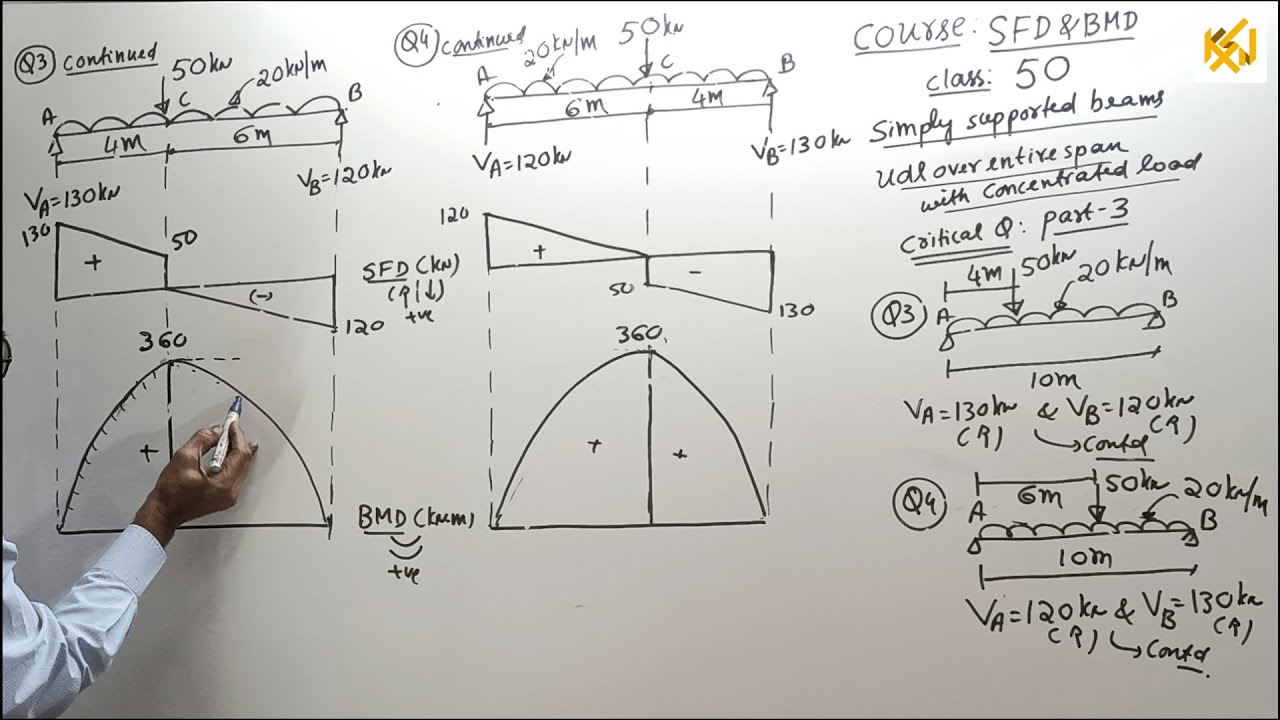 Q3 continued
50kN
20kN/m
A
C
B
4m
6m
VA=130kN
VB=120kN
130
50
+
(-)
120
360
+
Q4 continued
50kN
20kN/m
A
C
B
6m
4m
VA=120kN
VB=130kN
120
+
-
50
130
SFD (kN)
+ve
360
+
+
BMD (kN.m)
+ve
COURSE: SFD & BMD
class: 50
Simply supported beams
Udl over entire span
with Concentrated load
Critical Q: part-3
Q3
4m
50kN
20kN/m
A
B
10m
VA=130kN & VB=120kN
(↑)
(↑)
→ Contd
Q4
6m
50kN
20kN/m
A
B
10m
VA=120kN & VB=130kN
(↑)
(↑)
→ Contd.